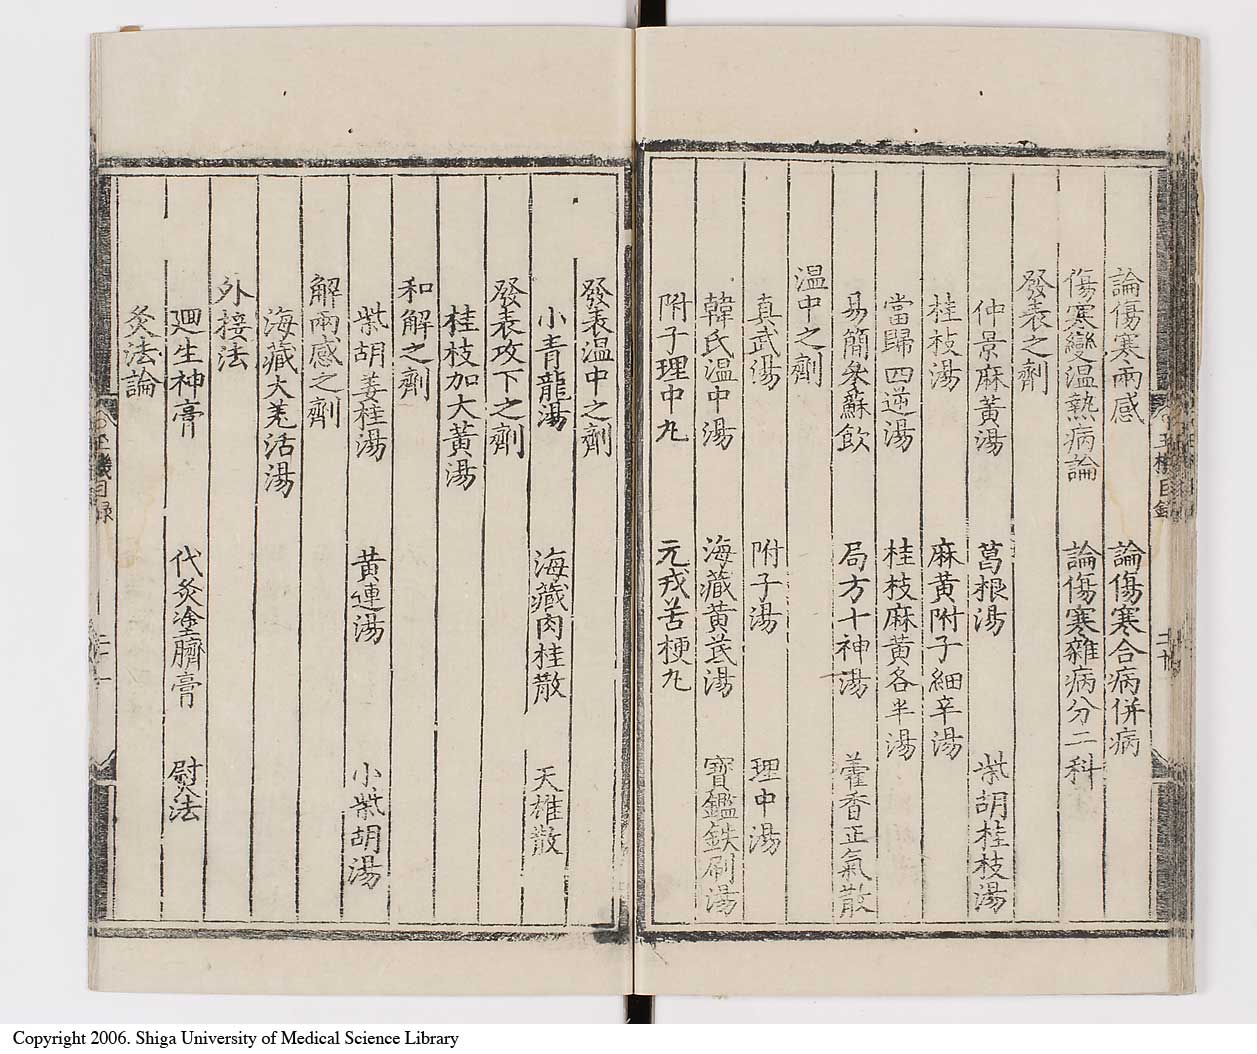 論傷寒兩感 論傷寒合病併病
傷寒變温熱病論 論傷寒雜病分二科
發表之劑
仲景麻黄湯 葛根湯 柴胡桂枝湯
桂枝湯 麻黄附子細辛湯
當歸四逆湯 桂枝麻黄各半湯
易簡參蘇飲 局方十神湯 藿香正氣散
温中之劑
真武湯 附子湯 理中湯
韓氏温中湯 海藏黄芪湯 寶鑑鉄刷湯
附子理中丸 元戎苦梗丸
發表温中之劑
小青龍湯 海藏肉桂散 天雄散
發表攻下之劑
桂枝加大黄湯
和解之劑
柴胡姜桂湯 黄連湯 小柴胡湯
解兩感之劑
海藏大羗活湯
外接法
廻生神膏 代灸塗臍膏 熨法
灸法論
玉機目録
Copyright 2006. Shiga University of Medical Science Library